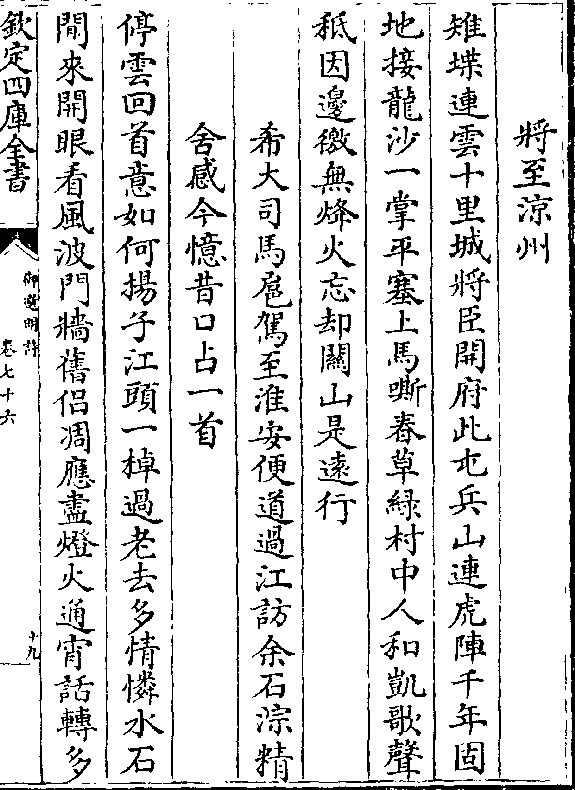 將至涼州
雉堞連雲十里城將臣開府此屯兵山連虎陣千年固
地接龍沙一掌平塞上馬嘶春草綠村中人和凱歌聲
秪因邊徼無烽火忘却關山是遠行
希大司馬扈駕至淮安便道過江訪余石淙精
舍感今憶昔口占一首
停雲回首意如何揚子江頭一棹過老去多情憐水石
閒來開眼看風波門牆舊侣凋應盡燈火通宵話轉多
欽定四庫全書
御選明詩
卷七十六
十九